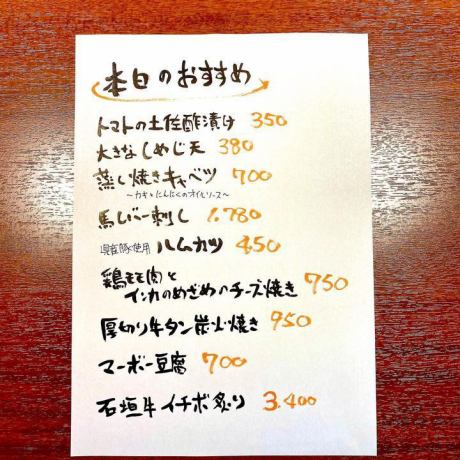 本日のおすすめ
トマトの土佐酢漬け 350
大きなしめじ天 380
蒸し焼きキャベツ 700
～カキとにんにくのオイルソース～
馬レバー刺し 1,780
県産豚使用 ハムカツ 450
鶏モモ肉と
インカのめざめのチーズ焼き 750
厚切り牛タン炭火焼き 950
マーボー豆腐 700
石垣牛イチボ炙り 3,400